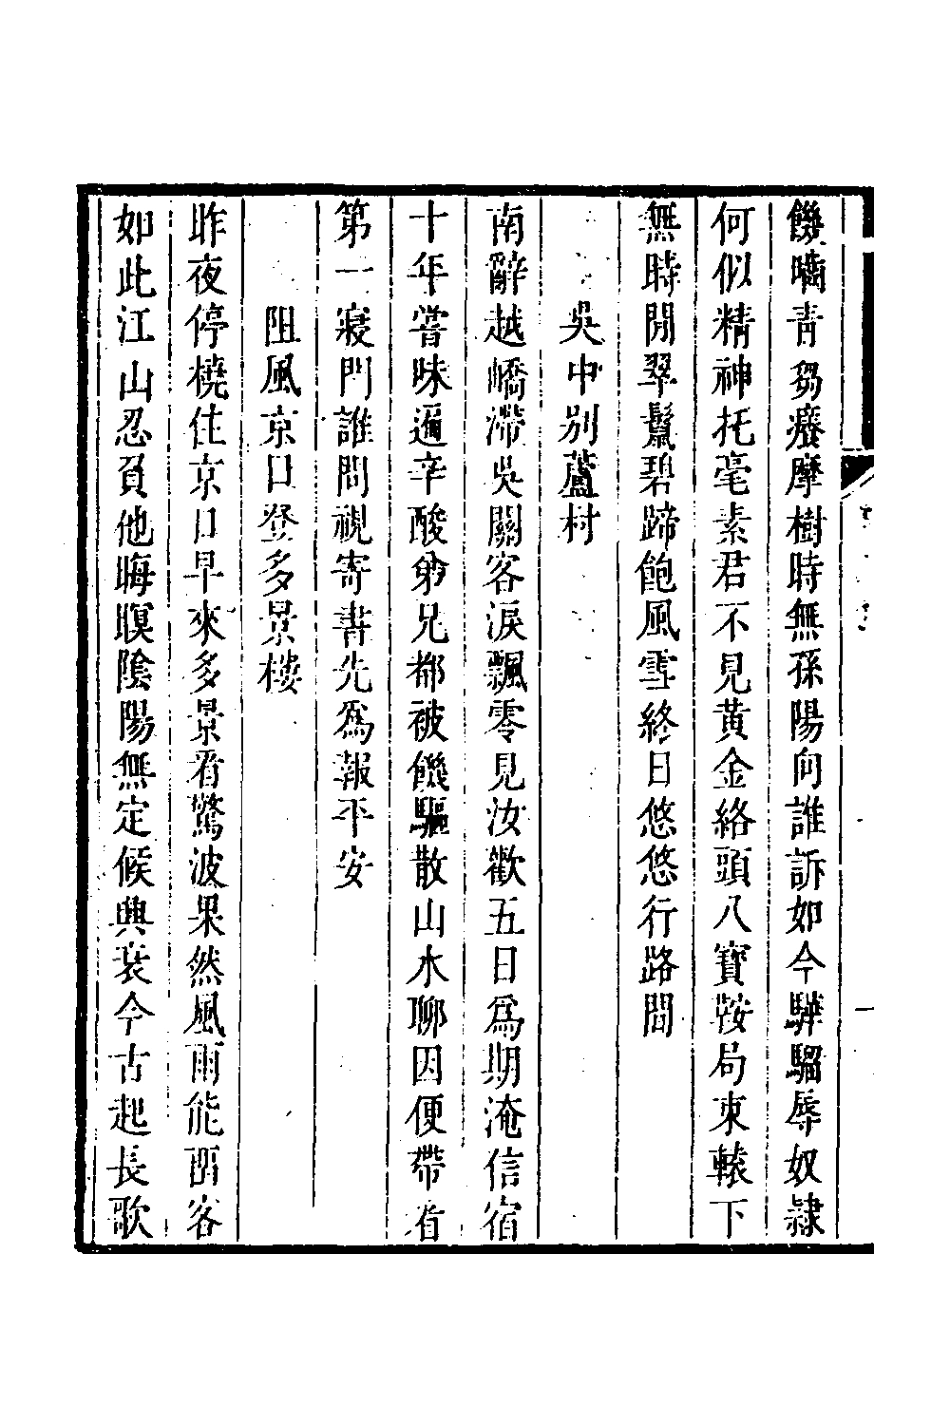 饑嚙青芻癢摩樹時無孫陽向誰訴如今驊騮辱奴隷
何似精神托毫素君不見黃金絡頭八寶鞍局束轅下
無時閒翠鬣碧蹄飽風雪終日悠悠行路間
吳中別蘆村
南辭越嶠滯吳關客淚飄零見汝歡五日爲期淹信宿
十年嘗味遍辛酸弟兄都被饑驅散山水聊因便帶看
第一寢門誰問視寄書先爲報平安
阻風京口登多景樓
昨夜停橈住京口早來多景看驚波果然風雨能留客
如此江山忍負他晦暝陰陽無定候興衰今古起長歌